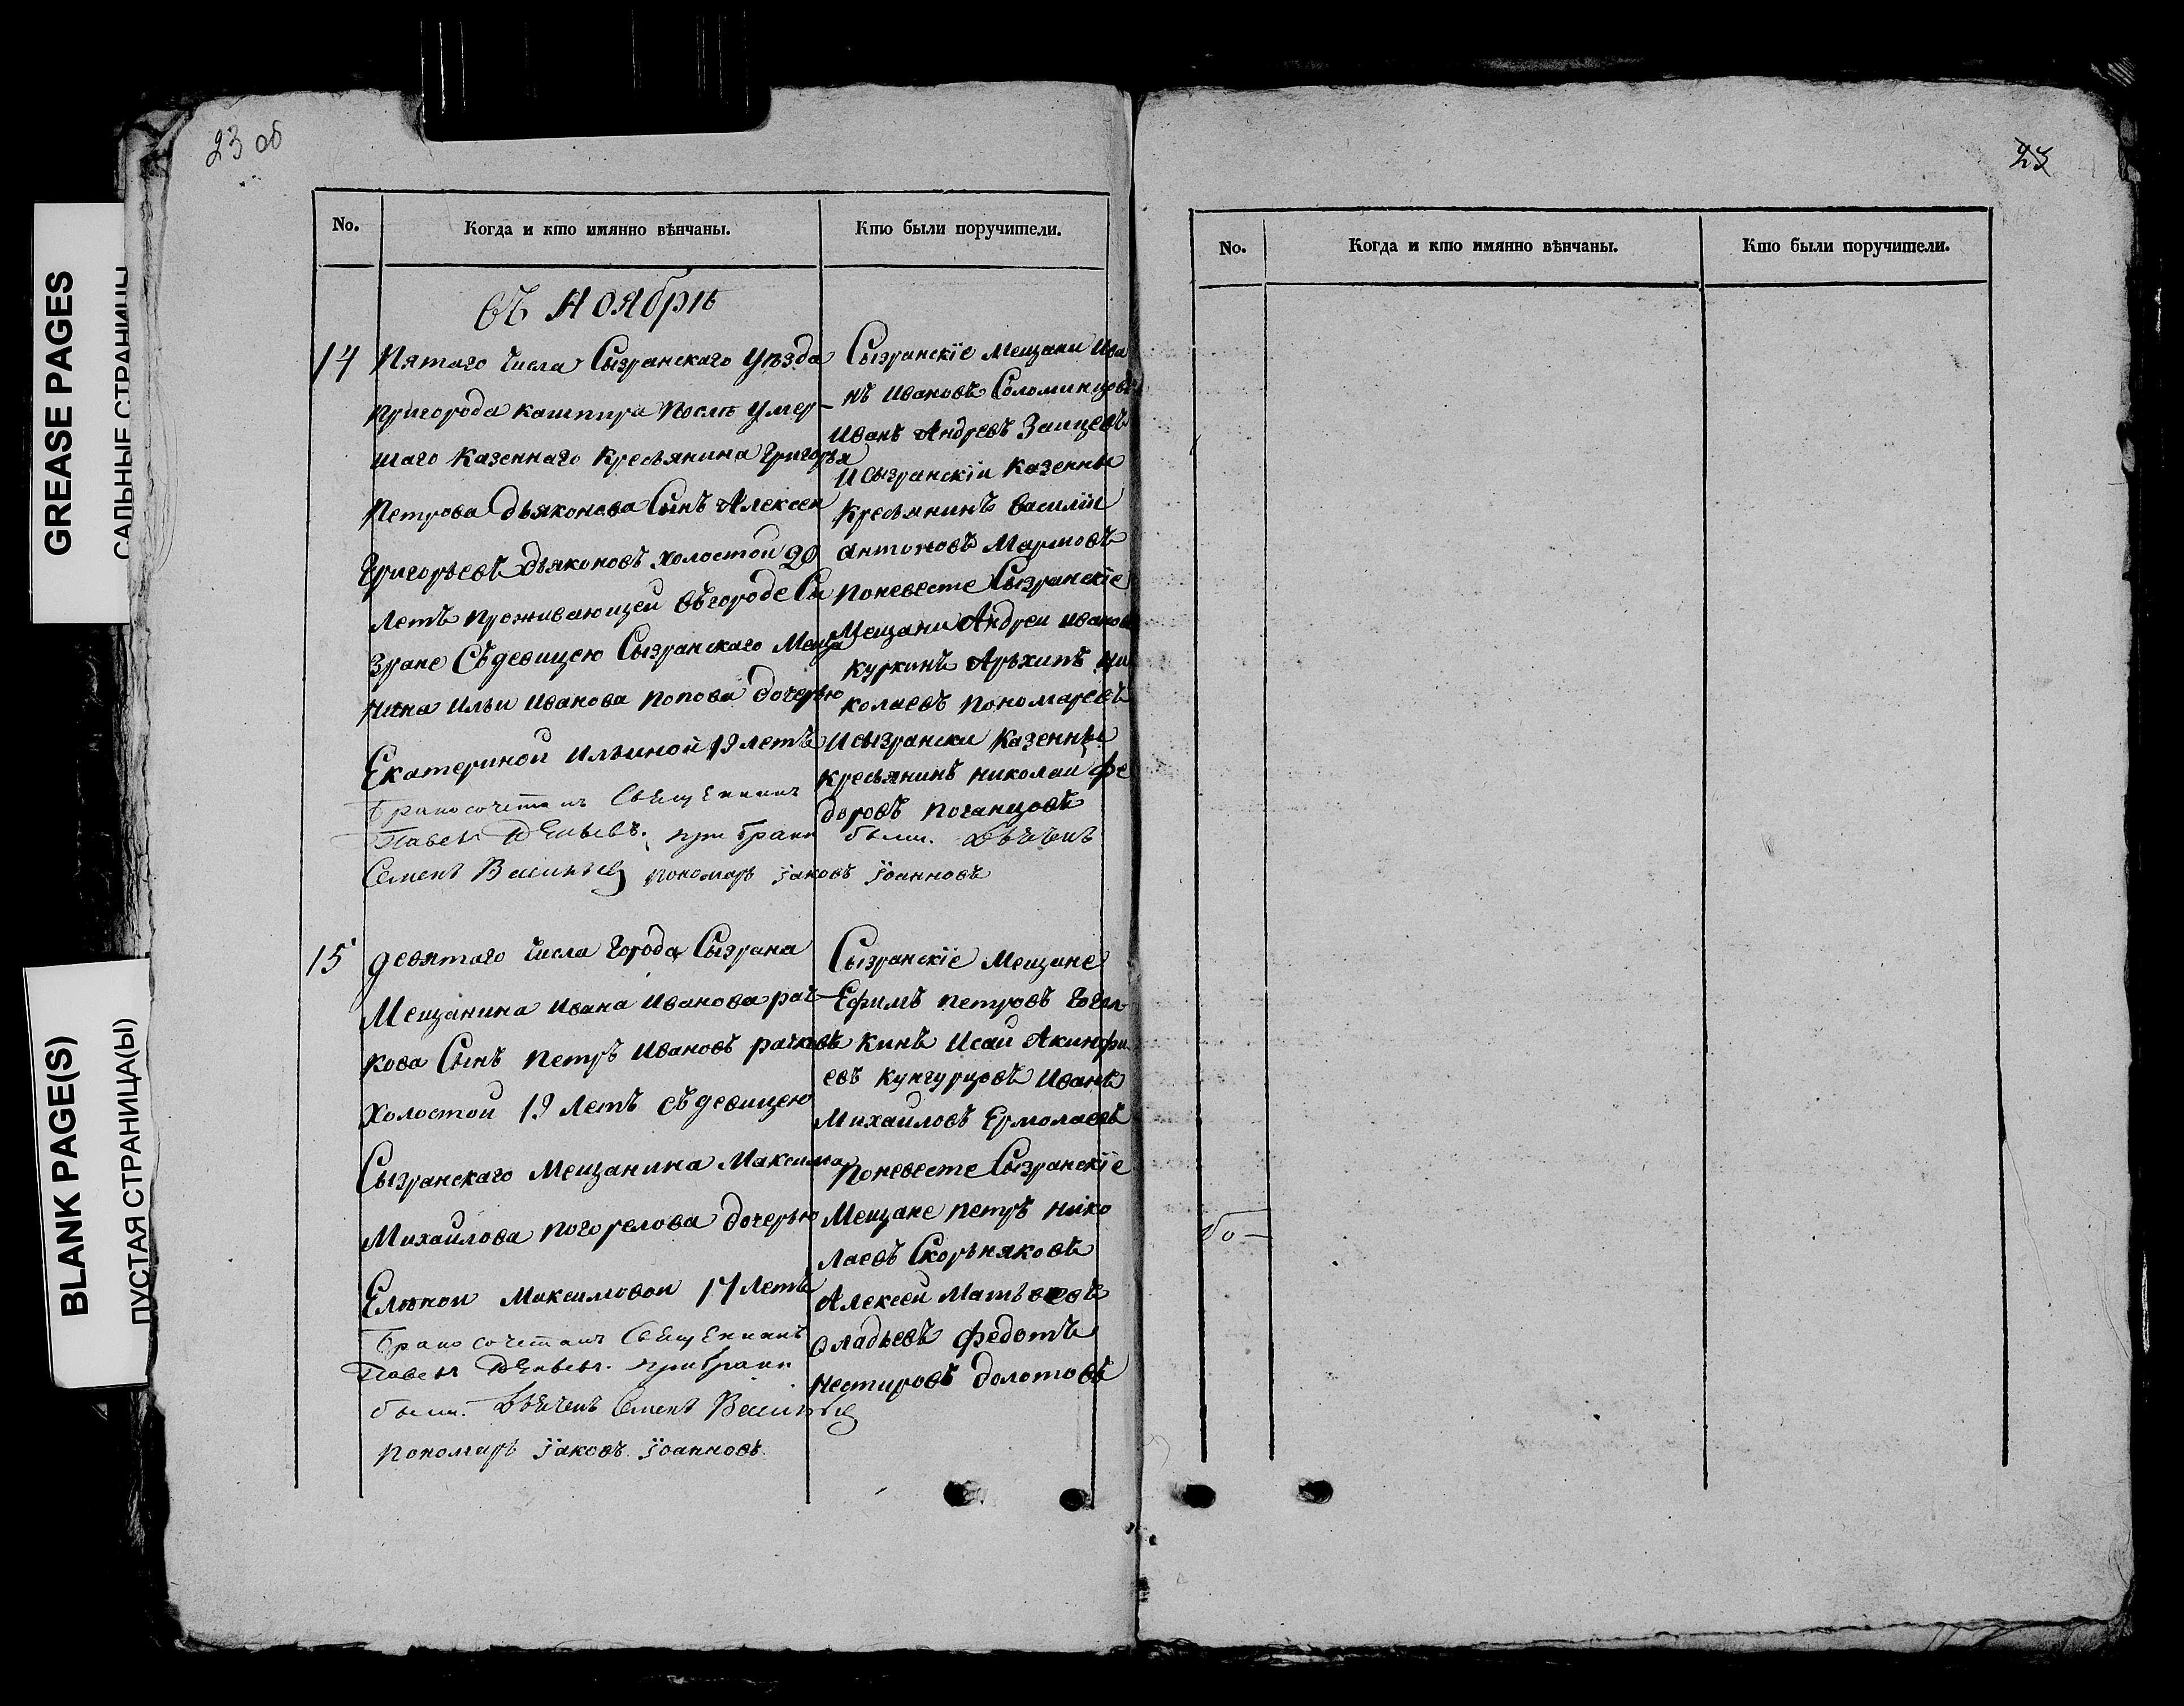 23 об
23
GREASE PAGES
САЛЬНЫЕ СТРАНИЦЫ
BLANK PAGE(S)
ПУСТАЯ СТРАНИЦА(Ы)
No.
Когда и кто имянно вѣнчаны.
Кто были поручители.
въ ноябрѣ
14
Пятаго числа Сызранскаго уѣзда
пригорода кашпира послѣ умер-
шаго казеннаго кресьянина Григорья
Петрова дьяконова Сынъ Алексеи
Григорьевъ дьяконовъ холостои 20
летъ проживающеи въгороде Сы
зране Съдевицею Сызранскаго Меща
нина Ильи Иванова попова дочерью
Екатериной Ильиной 19 летъ
бракосочеталъ Священникъ
Павелъ при браки были.
Семенъ Васильевъ пономарь іаковъ іоанновъ
Сызранскіе Мещани Ива
нъ Ивановъ Соломинцовъ
Иванъ Андревъ Заицевъ
И сызранскіи казенны
кресьянинъ Василіи
антоновъ Марновъ
Поневесте Сызранскіе
Мещани Андреи Иванов
куркинъ Архипъ Ни
колаевъ Пономаревъ
И сызрански казенны
кресьянинъ николаи фе
доровъ поганцовъ
15
девятаго числа Города Сызрана
Мещанина Ивана Иванова рач-
кова Сынъ Петръ Ивановъ рачковъ
Холостои 19 Летъ съдевицею
Сызранскаго Мещанина Максима
Михаилова погорелова дочерью
Еленои Максимовои 17 Летъ
Бракосочеталъ Священникъ
Павелъ при браки
были. Семенъ Васильевъ
пономарь іаковъ іоанновъ
Сызранскіе Мещане
Ефимъ Петровъ
кинъ Исаи Акинфи
евъ Кунгурцовъ Иванъ
Михаиловъ Ермолаевъ
Поневесте Сызранскіе
Мещане петръ нико
лаевъ Скорняковъ
Алексеи Матвеевъ
оладьевъ федотъ
нестировъ долотовъ
No.
Когда и кто имянно вѣнчаны.
Кто были поручители.